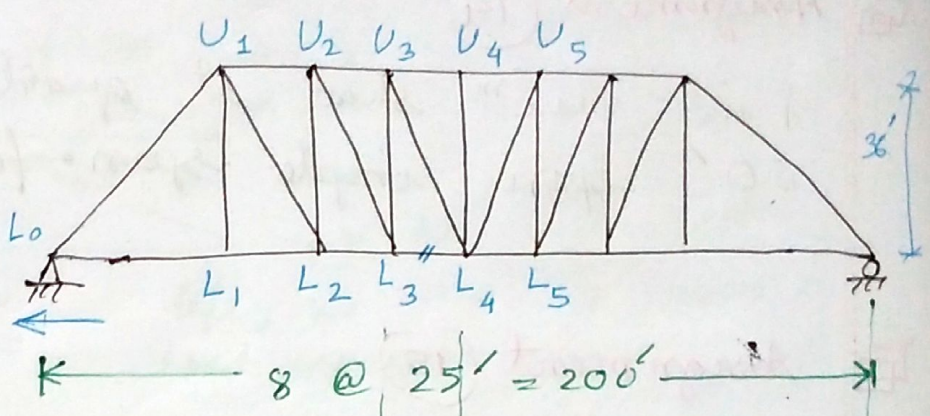 U1 U2 U3 U4 U5
36'
L0
L1 L2 L3 L4 L5
8 @ 25' = 200'